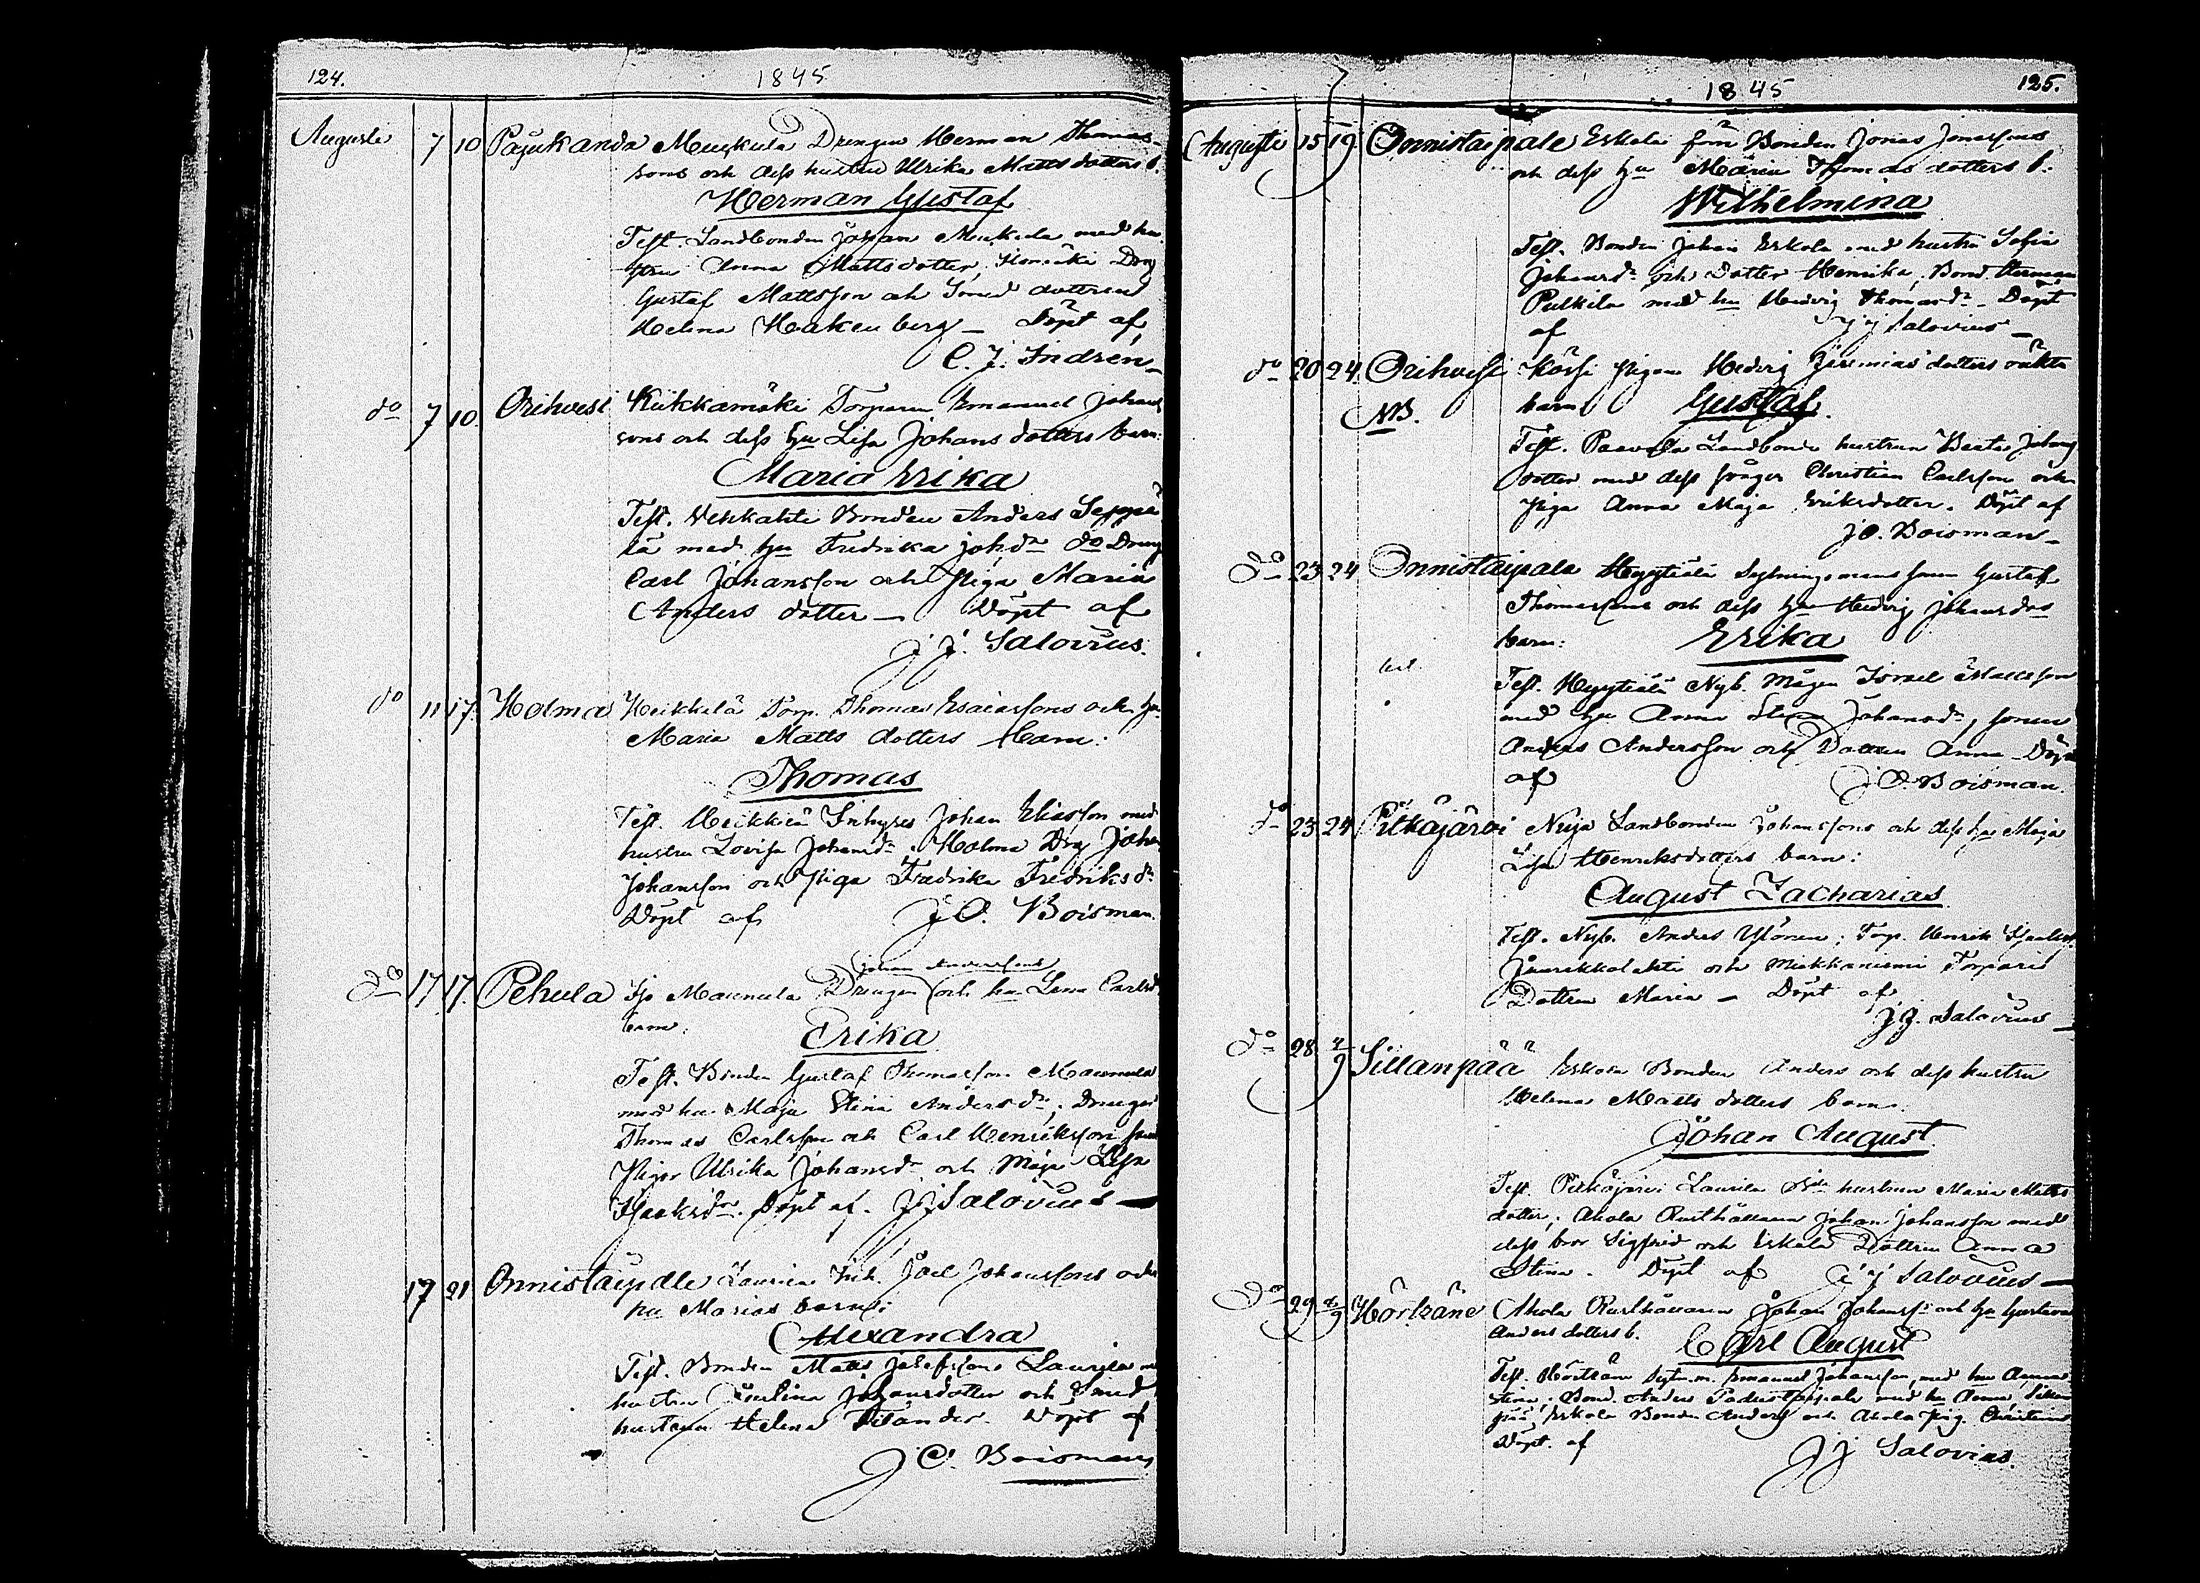 124.
1845
Augusti 7 10 Pajukanda Muskula Drengen Herman Thomas-
sons och dess hustru Ulrika Mattsdotters b.
Herman Gustaf
Test. Landbonden Johan Mukula med hu-
stru Anna Mattsdotter, Drg
Gustaf Mattsson och Smed dottren
Helena Hakenberg — Döpt af
C. J. Indrén
do 7 10. Orihvesi Kukkamäki Torparen Emanuel Johans
sons och dess hu Lisa Johans dotters barn:
Maria Erika
Test. Vehkahti Bonden Anders Seppä
lä med hu Fredrika Joh.dr do Dreng
Carl Johansson och Piga Maria
Anders dotter — Döpt af
J J. Salovius.
do 11 17. Holma Heikkilä Torp. Thomas Esaiassons och hu
Maria Matts dotters barn:
Thomas
Test. Heikkilä Inhyses Johan Eliasson med
hustru Lovisa Johansdr Holma Drg Johan
Johansson och Piga Fredrika Fredriksdr
Döpt af J O. Boisman.
Johan Anderssons
do 17 17. Pehula Maunula Drengen och hu Lena Carlsd
barn:
Erika
Test. Bonden Gustaf Thomasson Maunula
med hu Maja Stina Andersdr; Drengar
Thomas Carlsson och Carl Henriksson samt
Pigor Ulrika Johansdr och Maja Lisa
Isaksdr. Döpt af. J J Salovius —
17 21 Onnistaipale Laurila Inh. Joel Johanssons och
hu Marias barn:
Alexandra
Test. Bonden Matts Josefsons Laurila m
hustru Carolina Johansdotter och Smed
hustrun Helena Filander. Döpt af
J O. Boisman
1845
125.
Augusti 15 19 Onnistaipale Eskola förra Bonden Jonas Jonassons
och dess hu Maria Thomas dotters b.
Wilhelmina
Test. Bonden Johan Eskola med hustru Sofia
Johansdr och Dotter Henrika, Bond. Herman
Pulkila med hu Hedvig Thomasdr — Döpt
af J J Salovius —
do 20 24. Orihvesi Körsi Pigan Hedvig Jeremias dotters oäkta
NB. barn Gustaf
Test. Paavola Landbonde hustrun Beata Johans
dotter med dess svåger Christian Carlsson och
Piga Anna Maja Eriksdotter. Döpt af
J O. Boisman —
do 23 24 Onnistaipale Hyytiälä Sytningsmans sonen Gustaf
Thomassons och dess hu Hedvig Johansdrs
barn: Erika
Test. Hyytiälä Nyb. Mågen Israel Mattsson
med hu Anna Stina Johansdr, sonen
Anders Andersson och Dottren Anna — Döpt
af J O. Boisman.
do 23 24 Pitkäjärvi Nuja Landbonden Johanssons och dess hu Maja
Lisa Henriksdotters barn:
August Zacharias
Test. Nyb. Anders Ylönen; Torp. Henrik
och Torparis
Dottren Maria — Döpt af
J J. Salovius —
do 28 2/9 Sillanpää Eskola Bonden Anders och dess hustru
Helena Matts dotters barn.
Johan August
Test. Pitkäjärvi Laurila hustrun Maria Matts
dotter; Ahola Rusthållaren Johan Johansson med
dess bror Sigfrid och Eskola Dottren Anna
Stina. Döpt af J J Salovius —
do 29 2/9 Hörhäne Ahola Rusthållaren Johan Johanss: och hu Gustava
Anders dotters b. Carl August
Test. Sytn.m. Emanuel Johansson, med hu Anna
Stina; Bond. Anders med hu Anna, Sillan
pää Eskola Bonden Anders och Ahola Pig. Christina
Döpt. af J J Salovius.